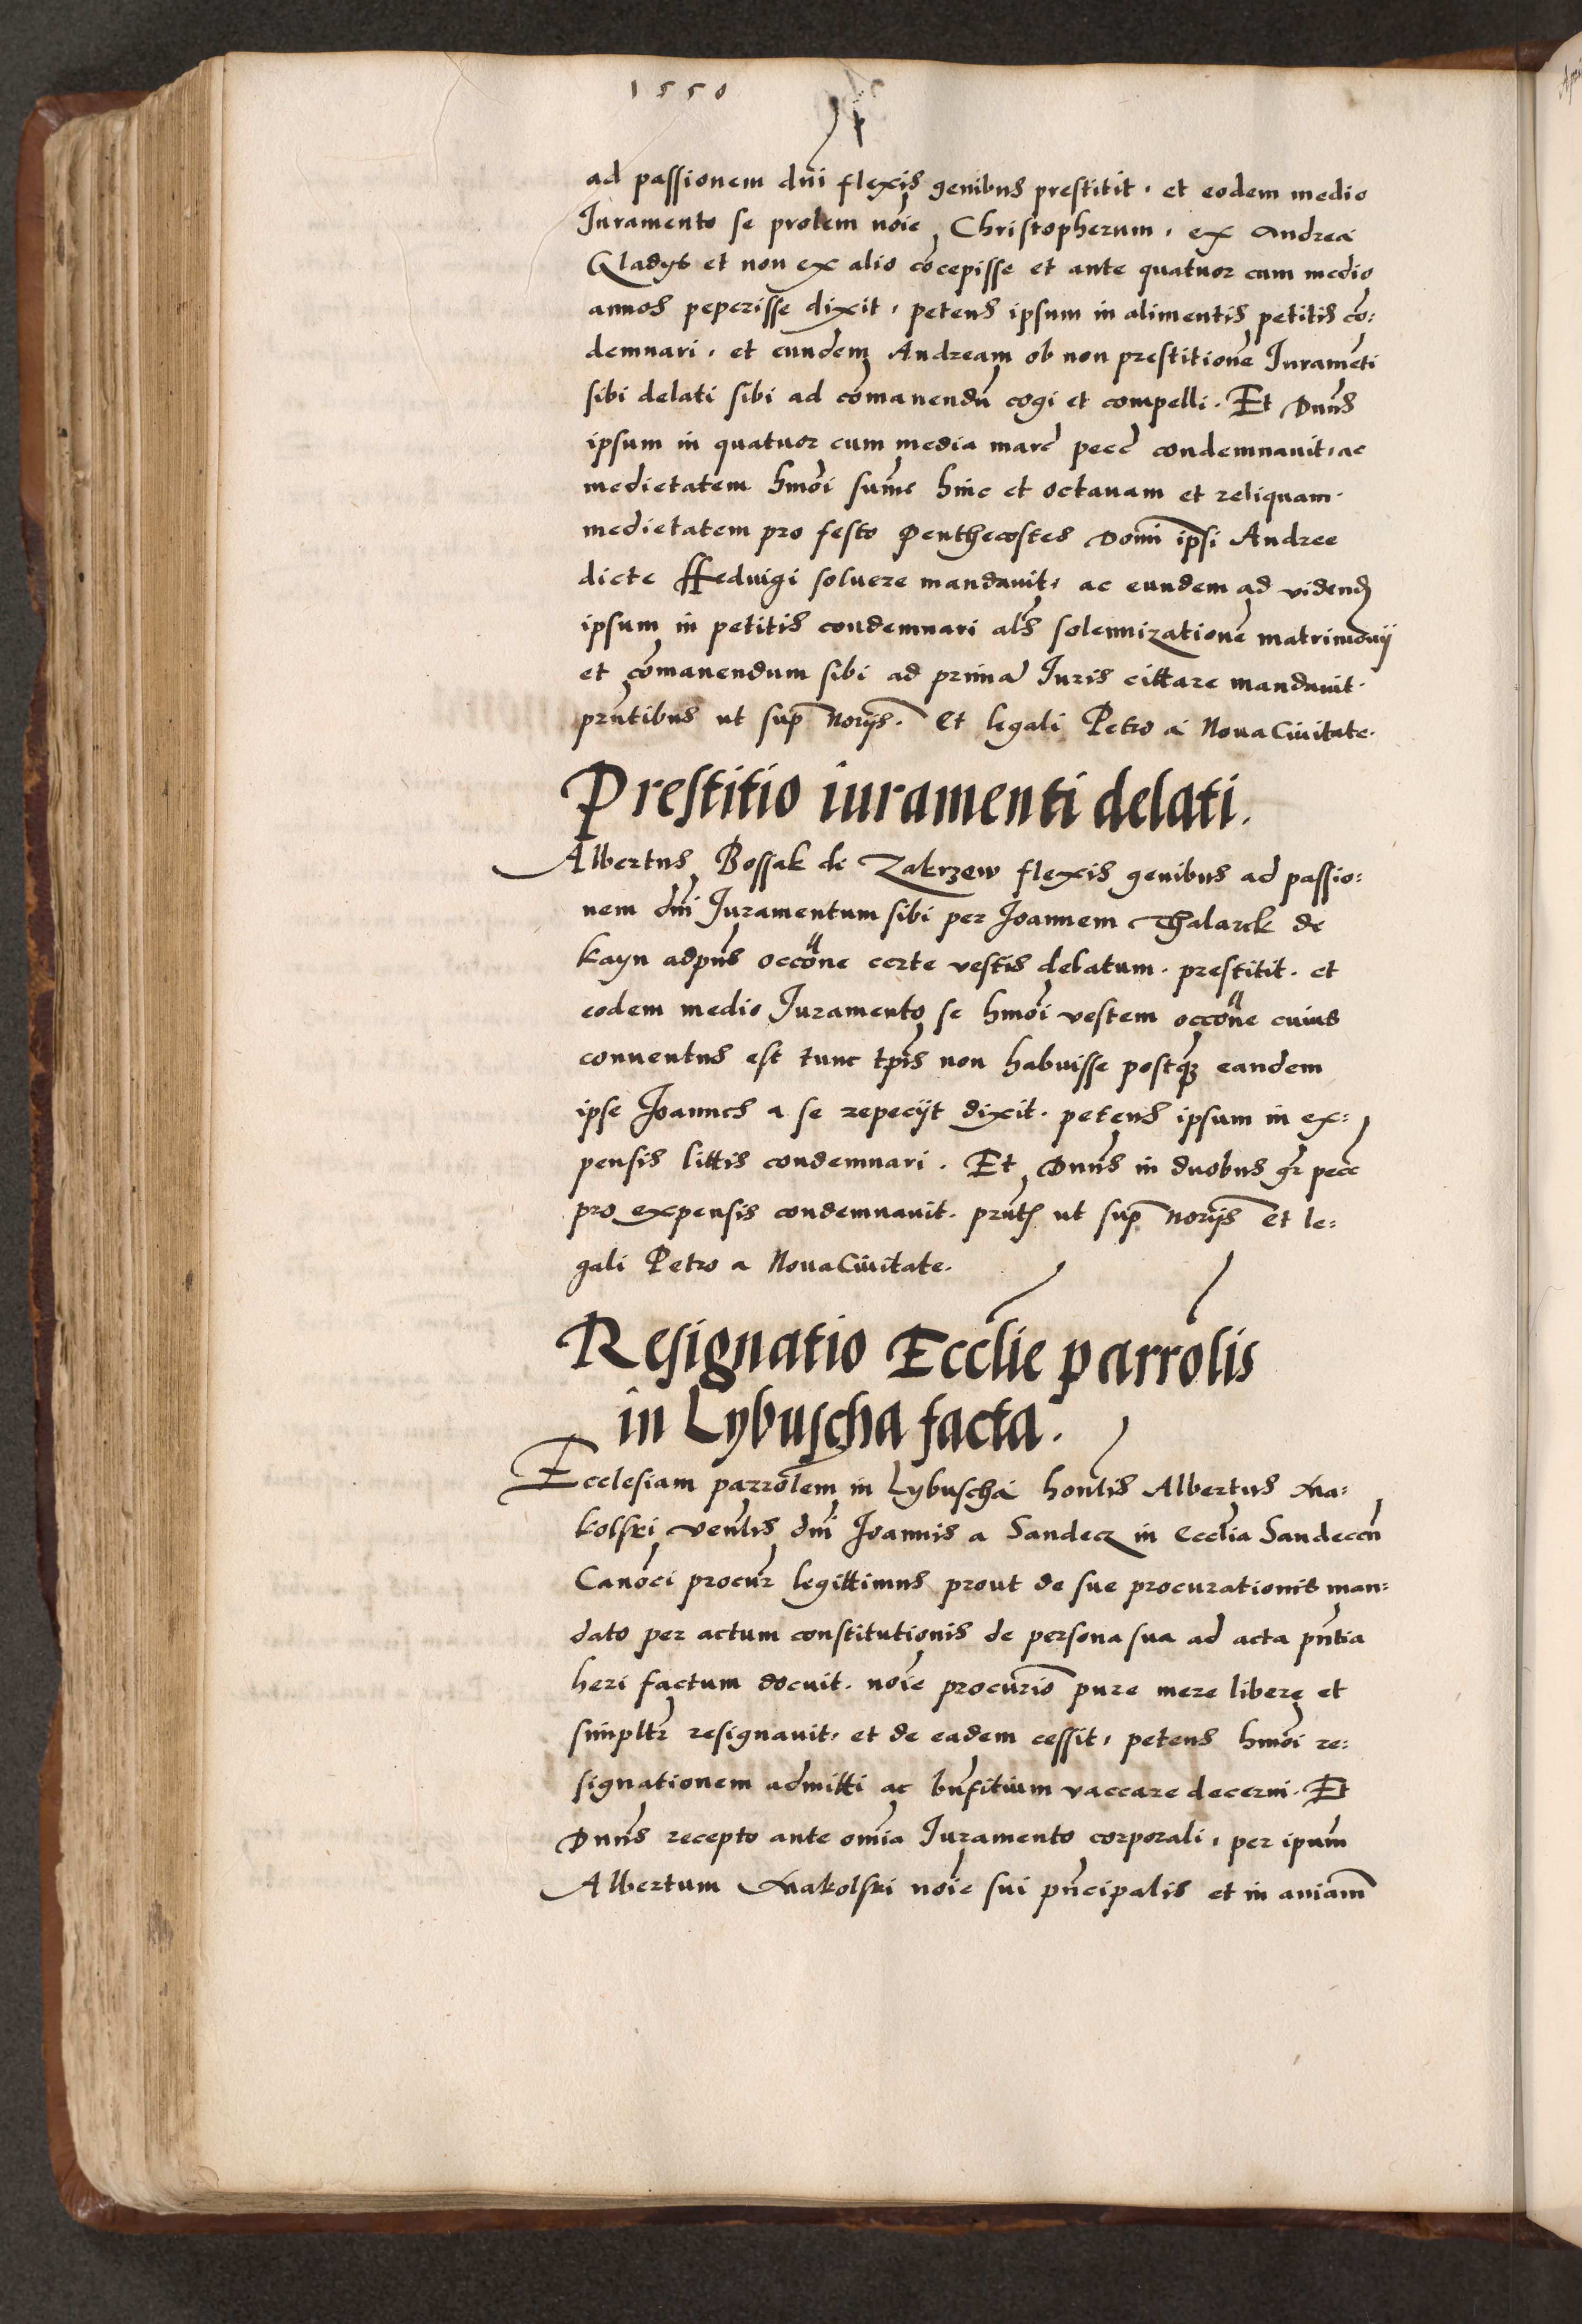 1550
ad passionem dni flexis genibus prestitit. et eodem medio
Juramento se prolem noie Christopherum, ex Andrea
Gladys et non ex alio cocepisse et ante quatuor cum medio
annos peperisse dixit, petens ipsum in alimentis petitis co:
demnari, et eundem Andream ob non prestitione Jurameti
sibi delati sibi ad comanendu cogi et compelli. Et Dnus
ipsum in quatuor cum media marc pecc condemnauit, ac
medietatem hmoi sume hinc et octauam et reliquam
medietatem pro festo Penthecostes Domi ipsi Andree
dicte Heduigi soluere mandauit, ac eundem ad vidend
ipsum in petitis condemnari als solennizatione matrimonij
et comanendum sibi ad prima Juris cittare mandauit.
pntibus ut sup norijs. Et legali Petro a Noua Ciuitate.
Prestitio iuramenti delati.
Albertus Bossak de Zakrzew flexis genibus ad passio:
nem dni Juramentum sibi per Joannem Thalarek de
kayn adpns occone certe vestis delatum. prestitit. et
eodem medio Juramento se hmoi vestem occone cuius
conuentus est tunc tpis non habuisse postq eandem
ipse Joannes a se repecijt dixit. petens ipsum in ex:
pensis littis condemnari. Et Dnus in duobus gr pecc
pro expensis condemnauit. pntt ut sup norijs Et le:
gali Petro a Noua Ciuitate.
Resignatio Ecclie parrolis
in Lybuscha facta.
Ecclesiam parrolem in Lybuscha honlis Albertus Ma:
kolski venlis dni Joannis a Sandecz in Ecclia Sandeccn
Canoci procur legittimus prout de sue procurationis man:
dato per actum constitutionis de persona sua ad acta pntia
heri factum docuit. noie procurio pure mere libere et
simpltr resignauit, et de eadem cessit, petens hmoi re:
signationem admitti ac bnfitium vaccare decerni. Et
Dnus recepto ante omia Juramento corporali, per ipum
Albertum Makolski noie sui pncipalis et in aniam